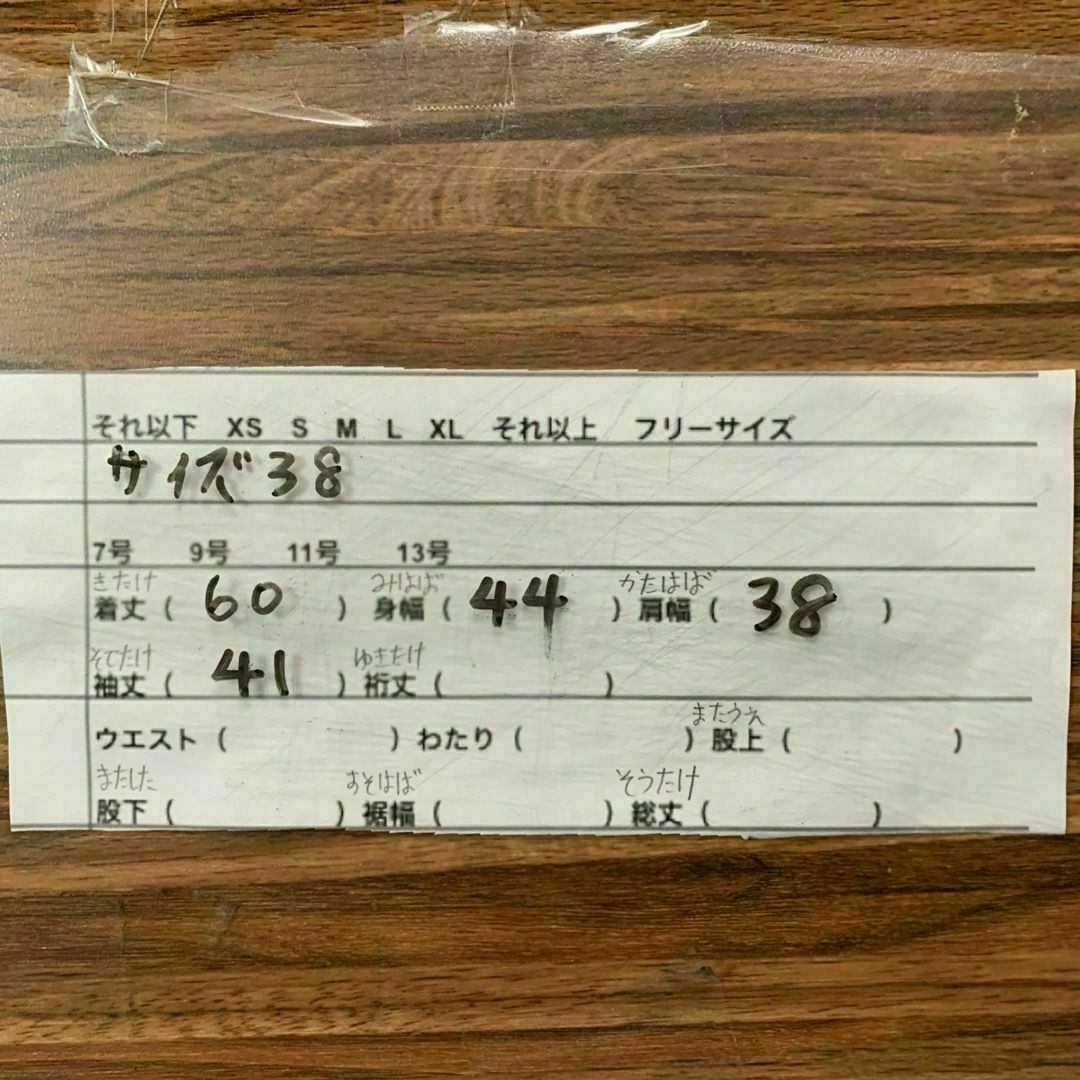 それ以下 XS S M L XL それ以上 フリーサイズ
サイズ38
7号 9号 11号 13号
きたけ みはば かたはば
着丈 ( 60 ) 身幅 ( 44 ) 肩幅 ( 38 )
そでたけ ゆきたけ
袖丈 ( 41 ) 裄丈 ( )
またうえ
ウエスト ( ) わたり ( ) 股上 ( )
またした すそはば そうたけ
股下 ( ) 裾幅 ( ) 総丈 ( )